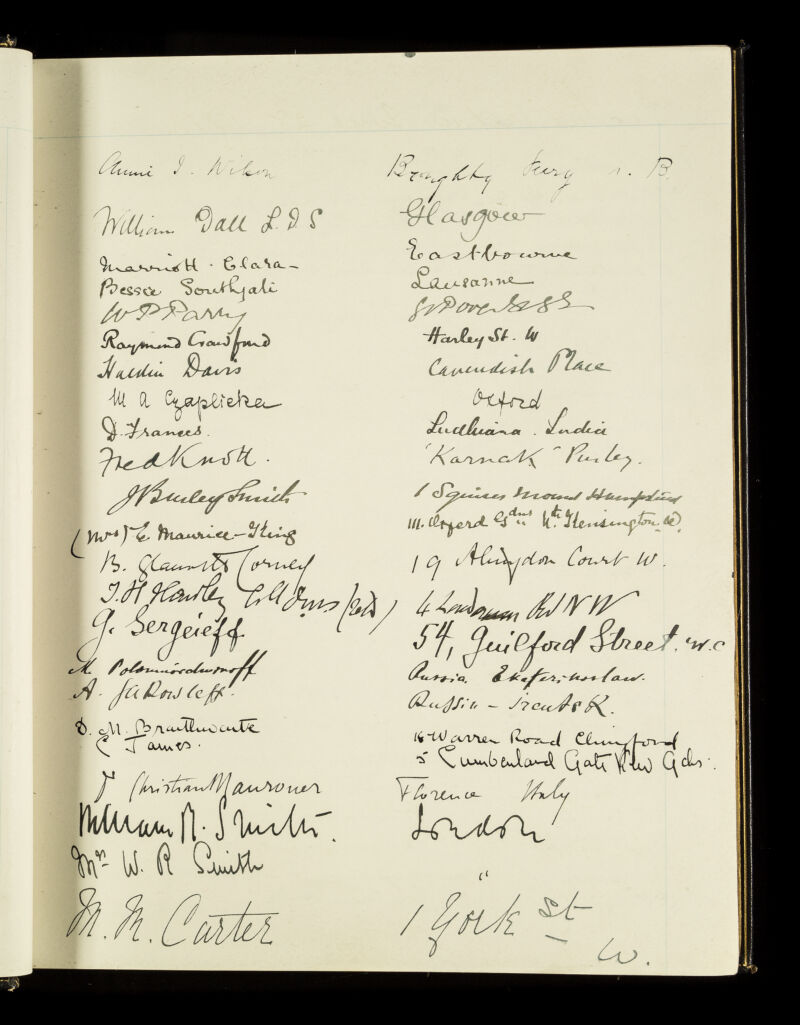 Annie I. Wilson Broughty Ferry N. B.
William Dall L.D.S Glasgow
Marriott. Clara - Eastbourne
Bessie Southgate Lausanne
W P Parry
Raymond Crawfurd Harley St. W
Haldin Davis Cavendish Place
M A Czaplicka Oxford
D. Frances. Ludhiana. India
Fred Knott. "Karnak" Purley.
J Burley Smith 1 Squires Mount Hampstead
(Mrs) E Maurice-King 111. Oxford Gdns Nth Kensington. W.
B. Glanvill Corney 19 Abingdon Court W.
J. H Hawley (Retd) 4 Rd N W
G. Sergeieff 54, Guilford Street. W.C
M. Russia. Ekaterinoslaw.
A. Jakowleff. Russia - Irkutsk.
D. M. Braithwaite 16 Warren Road Chingford
C James. 5 Cumberland Gate Kew Gdns.
Christian Mauroner Florence Italy
William R. Smith. London
Mrs W. R Smith "
M. M. Carter 1 York St
W.